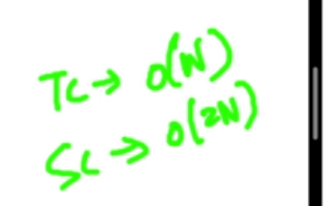 TC → O(N)
SC → O(2N)